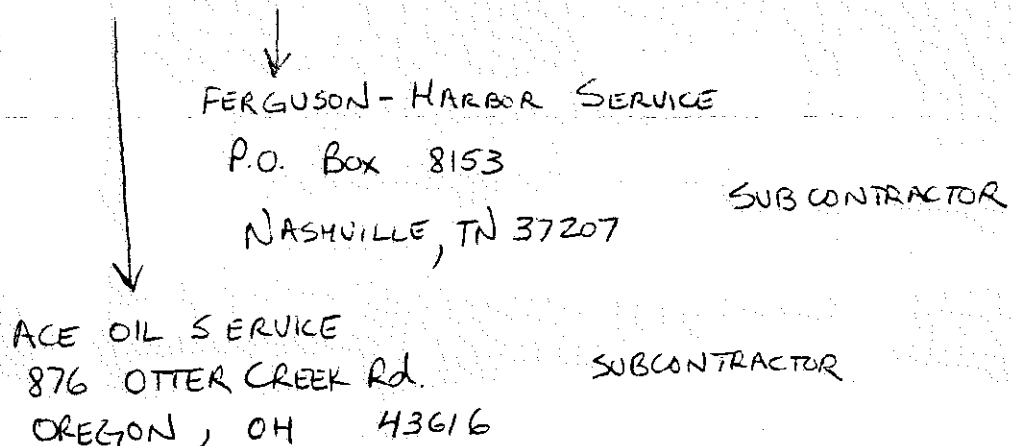 FERGUSON - HARBOR SERVICE
P.O. Box 8153
NASHVILLE, TN 37207
SUBCONTRACTOR
ACE OIL SERVICE
876 OTTER CREEK Rd.
OREGON, OH 43616
SUBCONTRACTOR